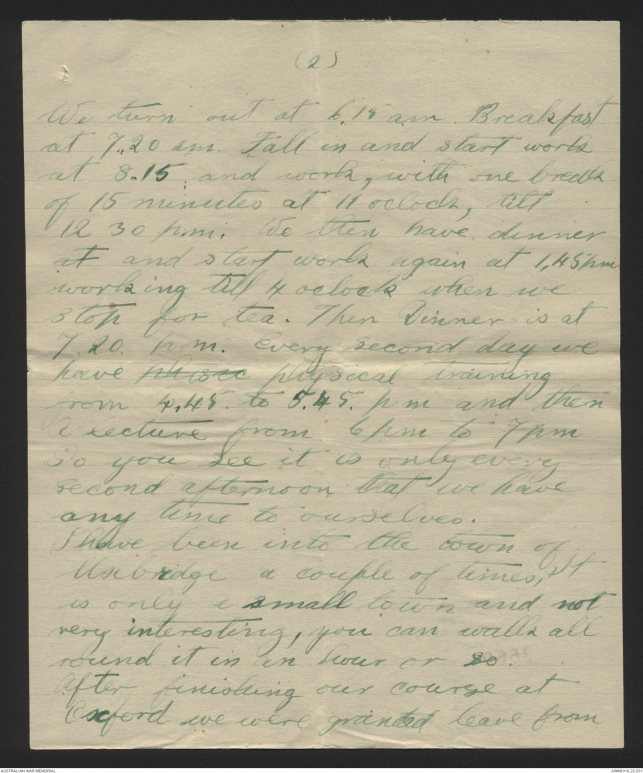 (2)
We turn out at 6.15 am. Breakfast
at 7.20 am. Fall in and start work
at 8.15, and work, with one break
of 15 minutes at 11 oclock, till
12 30 pm. We then have dinner
at and start work again at 1,45 pm
working till 4 oclock when we
stop for tea. Then Dinner is at
7.20. p.m. every second day we
have phisec physical training
from 4.45. to 5.45. pm and then
a lecture from 6pm to 7pm
So you see it is only every
second afternoon that we have
any time to ourselves.
I have been into the town of
Uxbridge a couple of times, It
is only a small town and not
very interesting, you can walk all
round it in an hour or so.
After finishing our course at
Oxford we were granted leave from
AUSTRALIAN WAR MEMORIAL